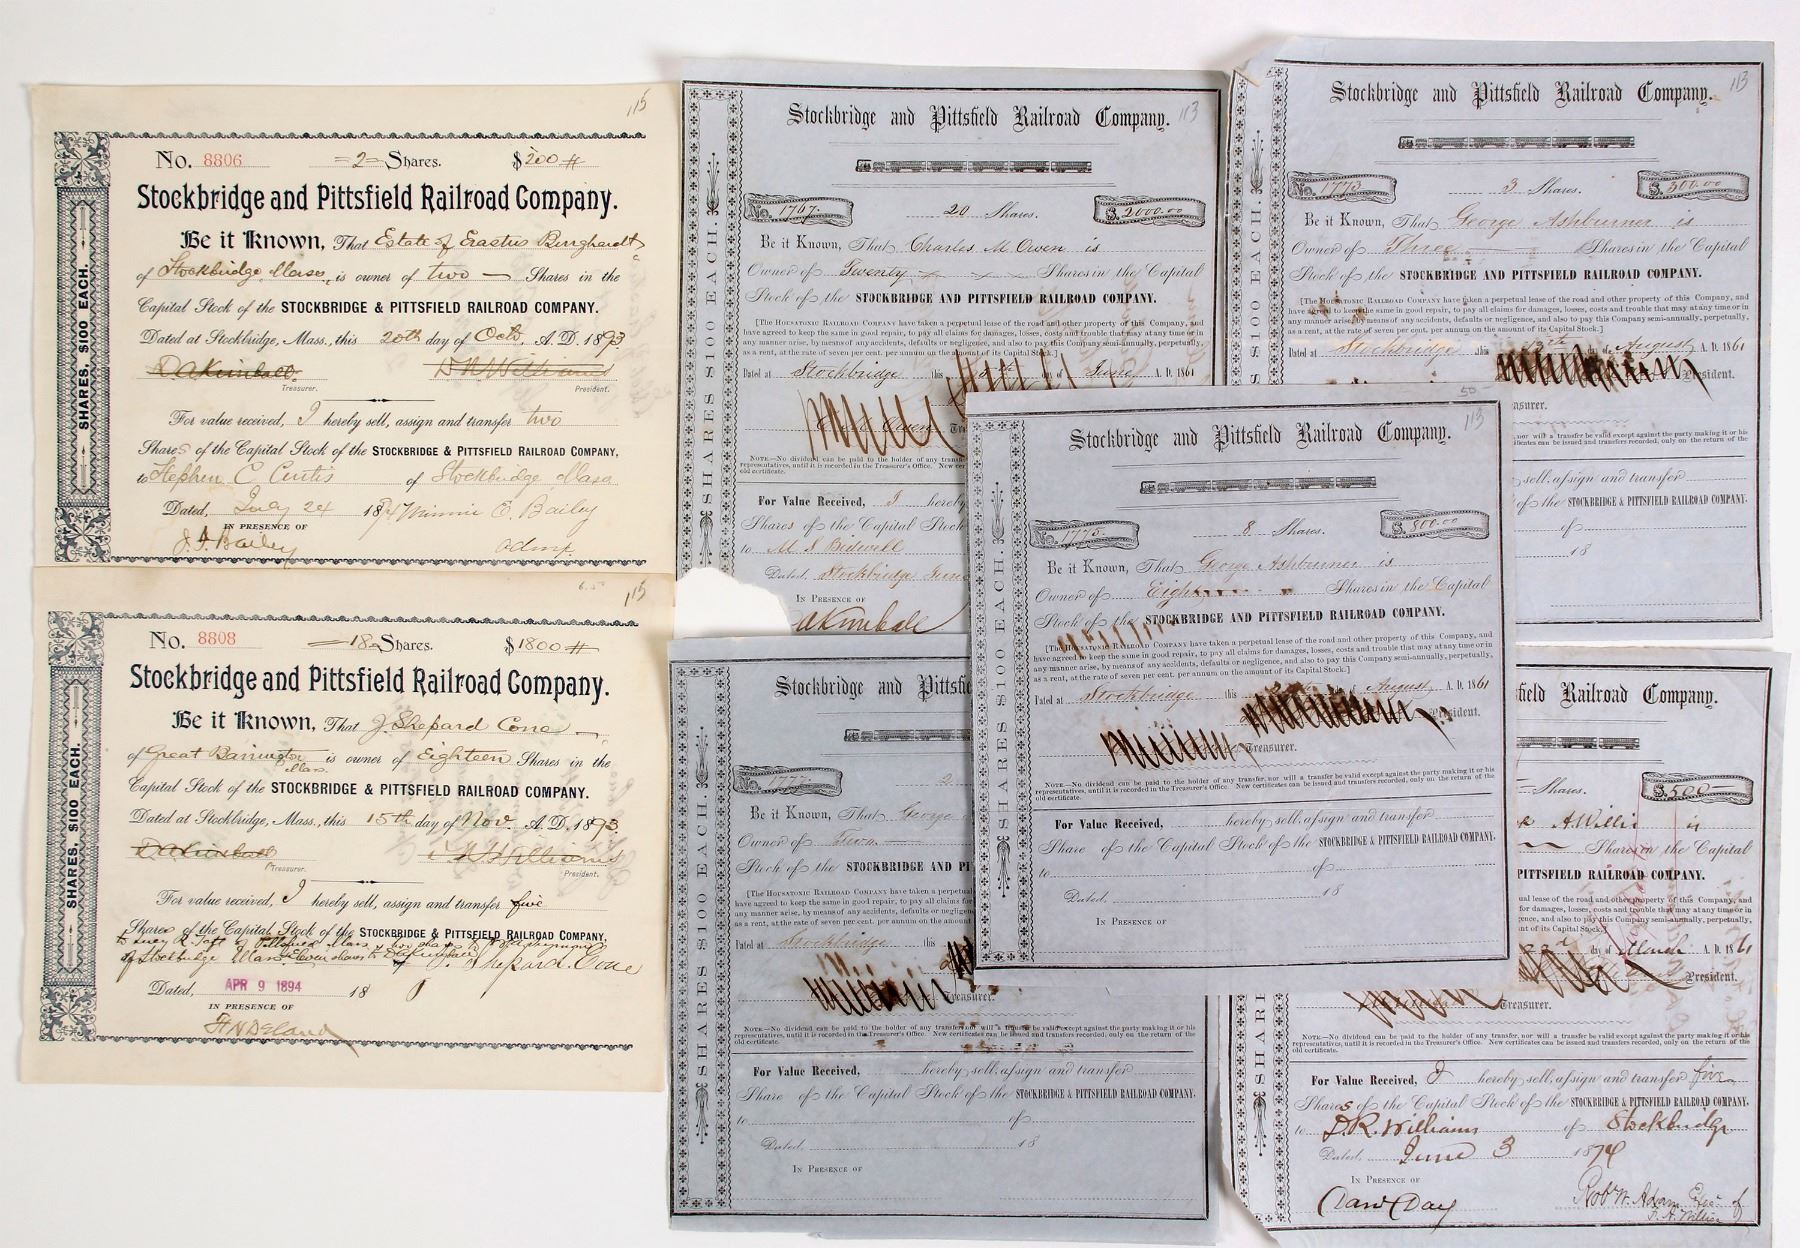 115
No. 8806 =2= Shares. $200
Stockbridge and Pittsfield Railroad Company.
Be it Known, That Estate of Erastus Burghardt
of Stockbridge Mass. is owner of two Shares in the
Capital Stock of the STOCKBRIDGE & PITTSFIELD RAILROAD COMPANY.
Dated at Stockbridge, Mass., this 20th day of Oct. A. D. 1893.
D A Kimball. D R Williams
Treasurer. President.
For value received, I hereby sell, assign and transfer two
Shares of the Capital Stock of the STOCKBRIDGE & PITTSFIELD RAILROAD COMPANY,
to Stephen C Curtis of Stockbridge Mass
Dated, July 24 1894 Minnie E. Bailey
IN PRESENCE OF
J. F. Bailey admx.
SHARES, $100 EACH.
115
No. 8808 18 Shares. $1800
Stockbridge and Pittsfield Railroad Company.
Be it Known, That J. Shepard Cone
of Great Barrington Mass is owner of Eighteen Shares in the
Capital Stock of the STOCKBRIDGE & PITTSFIELD RAILROAD COMPANY.
Dated at Stockbridge, Mass., this 15th day of Nov. A. D. 1893.
D A Kimball D R Williams
Treasurer. President.
For value received, I hereby sell, assign and transfer five
Shares of the Capital Stock of the STOCKBRIDGE & PITTSFIELD RAILROAD COMPANY,
of Stockbridge Mass. Eleven shares to D A Kimball J. Shepard. Cone
Dated, APR 9 1894 18
IN PRESENCE OF
SHARES, $100 EACH.
113
Stockbridge and Pittsfield Railroad Company.
No. 1767. 20 Shares. $. 2000.00
Be it Known, That Charles M. Owen is
Owner of Twenty Shares in the Capital
Stock of the STOCKBRIDGE AND PITTSFIELD RAILROAD COMPANY.
[The Housatonic Railroad Company have taken a perpetual lease of the road and other property of this Company, and
have agreed to keep the same in good repair, to pay all claims for damages, losses, costs and trouble that may at any time or in
any manner arise, by means of any accidents, defaults or negligence, and also to pay this Company semi-annually, perpetually,
as a rent, at the rate of seven per cent. per annum on the amount of its Capital Stock.]
Dated at Stockbridge this day of June A. D. 1861
NOTE.—No dividend can be paid to the holder of any trans
representatives, until it is recorded in the Treasurer's Office. New cer
old certificate.
For Value Received, I hereby
Shares of the Capital Stock
to M S Bidwell
Dated, Stockbridge June
IN PRESENCE OF
D A Kimball
SHARES $100 EACH.
113
Stockbridge and Pittsfield Railroad Company.
No. 1773. 3 Shares. $. 300.00
Be it Known, That George Ashburner is
Owner of Three Shares in the Capital
Stock of the STOCKBRIDGE AND PITTSFIELD RAILROAD COMPANY.
[The Housatonic Railroad Company have taken a perpetual lease of the road and other property of this Company, and
have agreed to keep the same in good repair, to pay all claims for damages, losses, costs and trouble that may at any time or in
any manner arise, by means of any accidents, defaults or negligence, and also to pay this Company semi-annually, perpetually,
as a rent, at the rate of seven per cent. per annum on the amount of its Capital Stock.]
Dated at Stockbridge this day of August A. D. 1861
President.
easurer.
nor will a transfer be valid except against the party making it or his
tificates can be issued and transfers recorded, only on the return of the
sell, assign and transfer
of the STOCKBRIDGE & PITTSFIELD RAILROAD COMPANY.
of
18
$100 EACH.
50
113
Stockbridge and Pittsfield Railroad Company.
No. 1775. 8 Shares. $. 800.00
Be it Known, That George Ashburner is
Owner of Eight Shares in the Capital
Stock of the STOCKBRIDGE AND PITTSFIELD RAILROAD COMPANY.
[The Housatonic Railroad Company have taken a perpetual lease of the road and other property of this Company, and
have agreed to keep the same in good repair, to pay all claims for damages, losses, costs and trouble that may at any time or in
any manner arise, by means of any accidents, defaults or negligence, and also to pay this Company semi-annually, perpetually,
as a rent, at the rate of seven per cent. per annum on the amount of its Capital Stock.]
Dated at Stockbridge this of August A. D. 1861
President.
Treasurer.
NOTE.—No dividend can be paid to the holder of any transfer, nor will a transfer be valid except against the party making it or his
representatives, until it is recorded in the Treasurer's Office. New certificates can be issued and transfers recorded, only on the return of the
old certificate.
For Value Received, hereby sell, assign and transfer
Share of the Capital Stock of the STOCKBRIDGE & PITTSFIELD RAILROAD COMPANY.
to of
Dated, 18
IN PRESENCE OF
SHARES $100 EACH.
Stockbridge and Pittsfie
No. 177 2
Be it Known, That George
Owner of Two
Stock of the STOCKBRIDGE AND PI
[The Housatonic Railroad Company have taken a perpetual
have agreed to keep the same in good repair, to pay all claims fo
any manner arise, by means of any accidents, defaults or negligen
as a rent, at the rate of seven per cent. per annum on the amou
Dated at Stockbridge this
Treasurer.
NOTE.—No dividend can be paid to the holder of any transfer, nor will a transfer be valid except against the party making it or his
representatives, until it is recorded in the Treasurer's Office. New certificates can be issued and transfers recorded, only on the return of the
old certificate.
For Value Received, hereby sell, assign and transfer
Share of the Capital Stock of the STOCKBRIDGE & PITTSFIELD RAILROAD COMPANY.
to of
Dated, 18
IN PRESENCE OF
SHARES $100 EACH.
sfield Railroad Company.
Shares. $. 500
A. Willis is
Shares in the Capital
PITTSFIELD RAILROAD COMPANY.
ual lease of the road and other property of this Company, and
for damages, losses, costs and trouble that may at any time or in
gence, and also to pay this Company semi-annually, perpetually,
unt of its Capital Stock.]
day of March A. D. 1861
President.
Treasurer.
NOTE.—No dividend can be paid to the holder of any transfer, nor will a transfer be valid except against the party making it or his
representatives, until it is recorded in the Treasurer's Office. New certificates can be issued and transfers recorded, only on the return of the
old certificate.
For Value Received, I hereby sell, assign and transfer five
Shares of the Capital Stock of the STOCKBRIDGE & PITTSFIELD RAILROAD COMPANY.
to D. R. Williams of Stockbridge
Dated, June 3 1874
IN PRESENCE OF
Robt W. Adam Exec of
SHAR